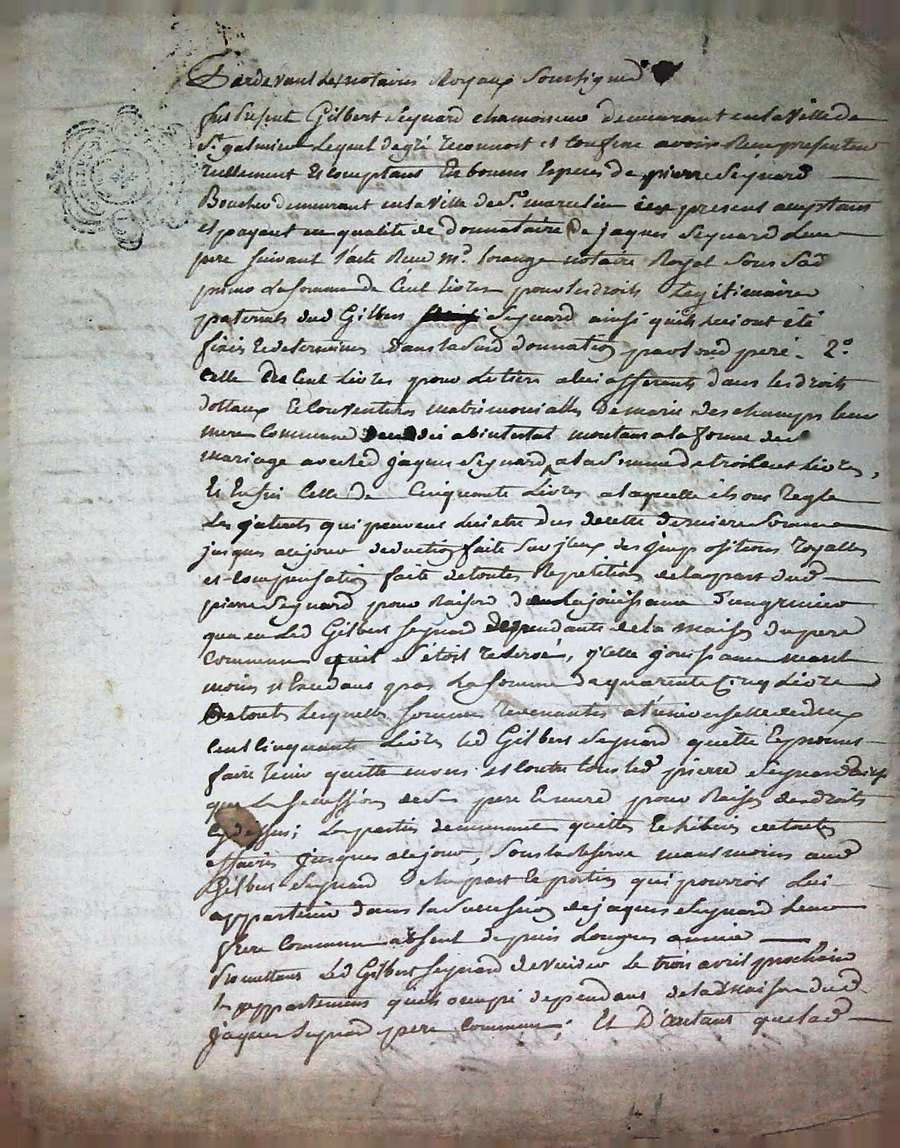 Pardevant les notaires Royaux Soussignés
fut présent Gilbert Seynard chamoiseur demeurant en la ville de
St galmier Lequel de gré reconnoit et confesse avoir Reçu présentem
réellement et comptant En bonnes Espèces de pierre Seynard
Boucher demeurant en la ville de St marcelin icy présent acceptant
et payant en qualité de donnataire de jaques Seynard Leur
pere suivant l'acte Reçu me notaire Royal Sous Sad
primo La Somme de Cent Livres pour les droits Légitimaires
paternels dud Gilbert Seynard ainsi quils lui ont été
fixés et determinés dans la Susd donnation par Led pere. 2o
Celle de Cent Livres pour Le tiers a lui afferent dans les droits
dottaux et matrimoniales de marie deschamps leur
mere Commune ab intestat montant a la forme de
mariage avec led jaques Seynard a la Somme de trois cent Livres,
Et Enfin Celle de Cinquante Livres a laquelle ils ont Reglé
Les qui peuvent lui etre dus de cette derniere Somme
jusques a ce jour deduction faite Sur Iceux des Impositions royalles
et compensation faite de toutes Repetitions de la part dud
pierre Seynard pour Raison de la jouissance d'un grenier
qua eu Led Gilbert Seynard dependante de la maison du pere
commun quil s'étoit reservé, q'celle jouissance neant
moins n'Excedant pas La Somme de quarente Cinq Livres
De toutes Lesquelles Sommes revenantes a l'universelle de deux
Cent Cinquante Livres led Gilbert Seynard quitte et promet
faire tenir quitte envers et contre tous led pierre Seynard
que La Succession de Ses pere et mere pour Raison des droits
cy dessus; Les parties demeurant quittes et de toutes
affaires jusques a ce jour, Sous la Reserve neantmoins aud
Gilbert Seynard de la part et portion qui pourroit Lui
appartenir dans la Succession de jaques Seynard Leur
frere Commun absent depuis Longues années
Promettant Led Gilbert Seynard de vuider Le trois avril prochain
L'appartement quil occupe dependant de la Maison dud
jaques Seynard pere Commun; Et D'autant que led